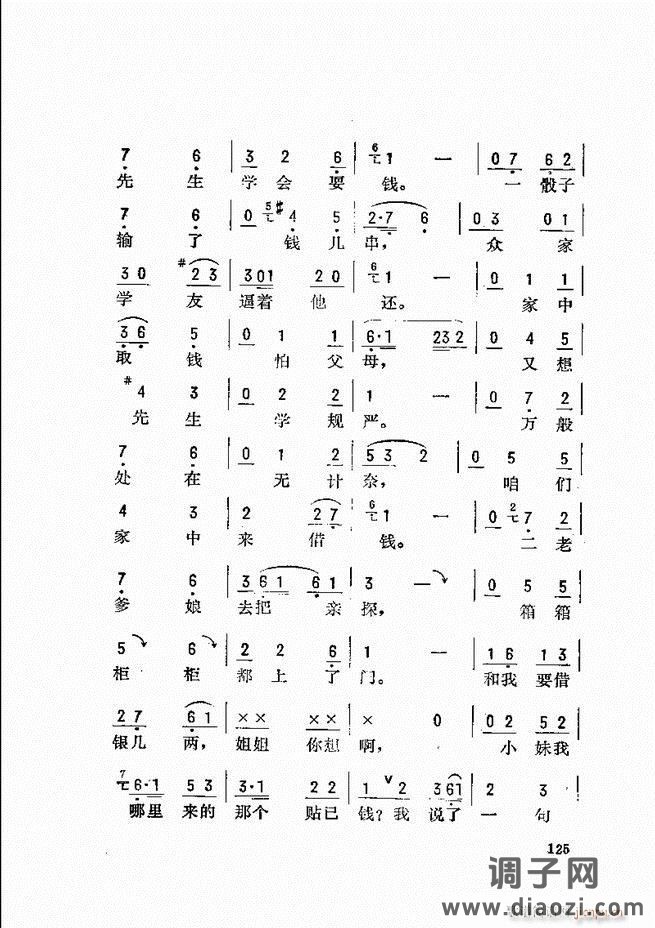 7 6 | 3 2 6 | 6 七 1 — | 0 7 6 2 |
先 生 学会 耍 钱。 一 骰子
7 6 | 0 5 七 # 4 5 | 2·7 6 | 0 3 0 1 |
输 了 钱 儿 串， 众 家
3 0 #2 3 | 3 0 1 2 0 | 6 七 1 — | 0 1 1 |
学 友 逼着 他 还。 家 中
3 6 5 | 0 1 1 | 6·1 2 3 2 | 0 4 5 |
取 钱 怕 父 母， 又 想
#4 3 | 0 2 2 | 1 — | 0 7 2 |
先 生 学 规 严。 万 般
7 6 | 0 1 2 | 5 3 2 | 0 5 5 |
处 在 无 计 奈， 咱 们
4 3 | 2 2 7 | 6 七 1 — | 0 2 七 7 2 |
家 中 来 借 钱。 二 老
7 6 | 3 6 1 6 1 | 3 — | 0 5 5 |
爹 娘 去把 亲 探， 箱 箱
5 6 | 2 2 6 | 1 — | 1 6 1 3 |
柜 柜 都 上 了 门。 和我 要借
2 7 6 1 | × × × × | × 0 | 0 2 5 2 |
银几 两， 姐姐 你想 啊， 小 妹我
7 七 6·1 5 3 | 3·1 2 2 | 1 V 2 3 6 1 | 2 3 |
哪里 来的 那个 贴已 钱？我 说了 一 句
125
调子网
www.diaozi.com